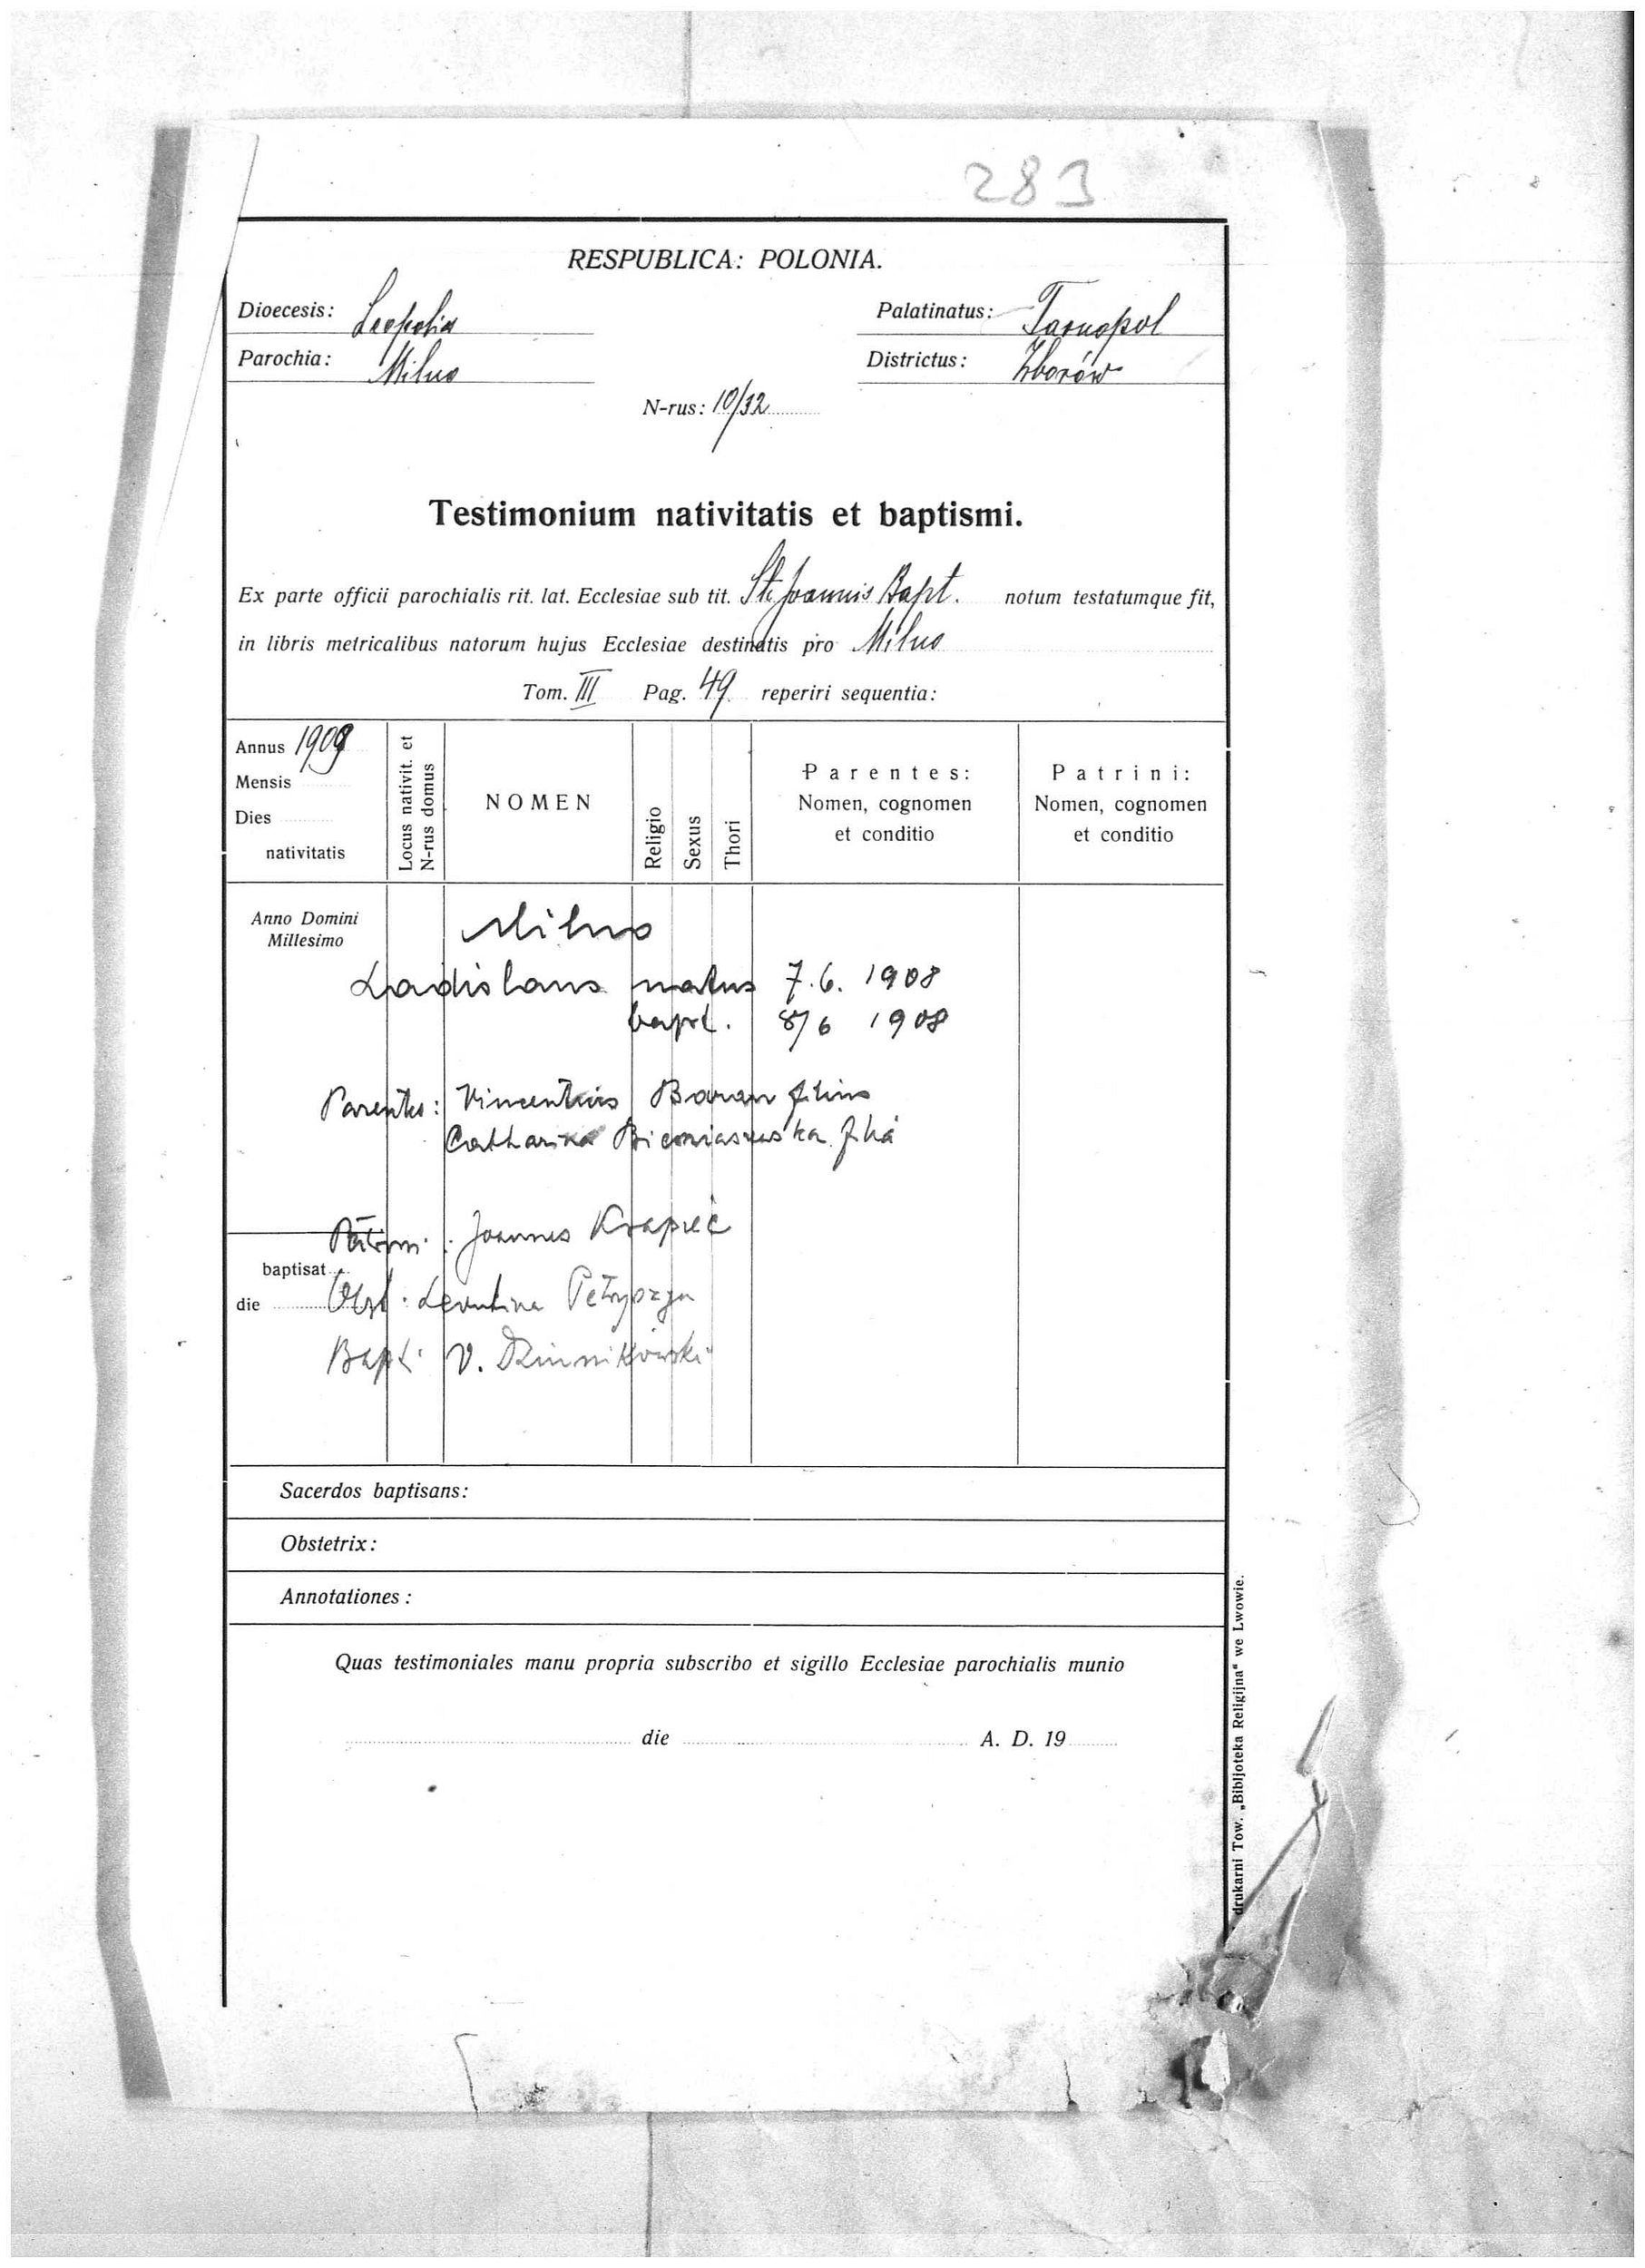 283
RESPUBLICA: POLONIA.
Dioecesis: Leopolis Palatinatus: Tarnopol
Parochia: Milno Districtus: Zborów
N-rus: 10/32
Testimonium nativitatis et baptismi.
Ex parte officii parochialis rit. lat. Ecclesiae sub tit. Sti Joannis Bapt. notum testatumque fit,
in libris metricalibus natorum hujus Ecclesiae destinatis pro Milno
Tom. III Pag. 49 reperiri sequentia:
Annus 1908
Mensis
Dies
nativitatis
Locus nativit. et
N-rus domus
NOMEN
Religio
Sexus
Thori
Parentes:
Nomen, cognomen
et conditio
Patrini:
Nomen, cognomen
et conditio
Anno Domini
Millesimo
Milno
Ladislaus natus 7.6. 1908
bapt. 8/6 1908
Parentes: Vincentius Baran filius
Catharina filia
Patrini: Joannes Krąpiec
baptisat
die
Obst:
Bapt: V.
Sacerdos baptisans:
Obstetrix:
Annotationes:
Quas testimoniales manu propria subscribo et sigillo Ecclesiae parochialis munio
die A. D. 19
drukarni Tow. „Bibljoteka Religijna" we Lwowie.